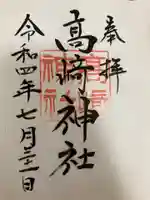 奉拝
高崎神社
令和四年七月三十一日